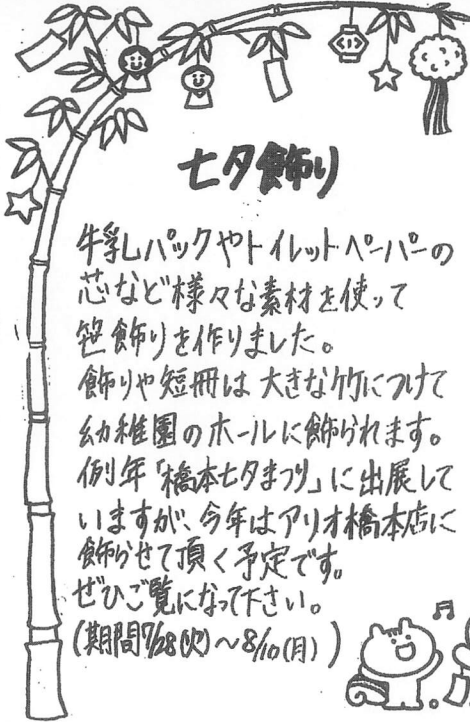 七夕飾り
牛乳パックやトイレットペーパーの
芯など様々な素材を使って
笹飾りを作りました。
飾りや短冊は大きな竹につけて
幼稚園のホールに飾られます。
例年「橋本七夕まつり」に出展して
いますが、今年はアリオ橋本店に
飾らせて頂く予定です。
ぜひご覧になって下さい。
(期間7/28(火)～8/10(月))